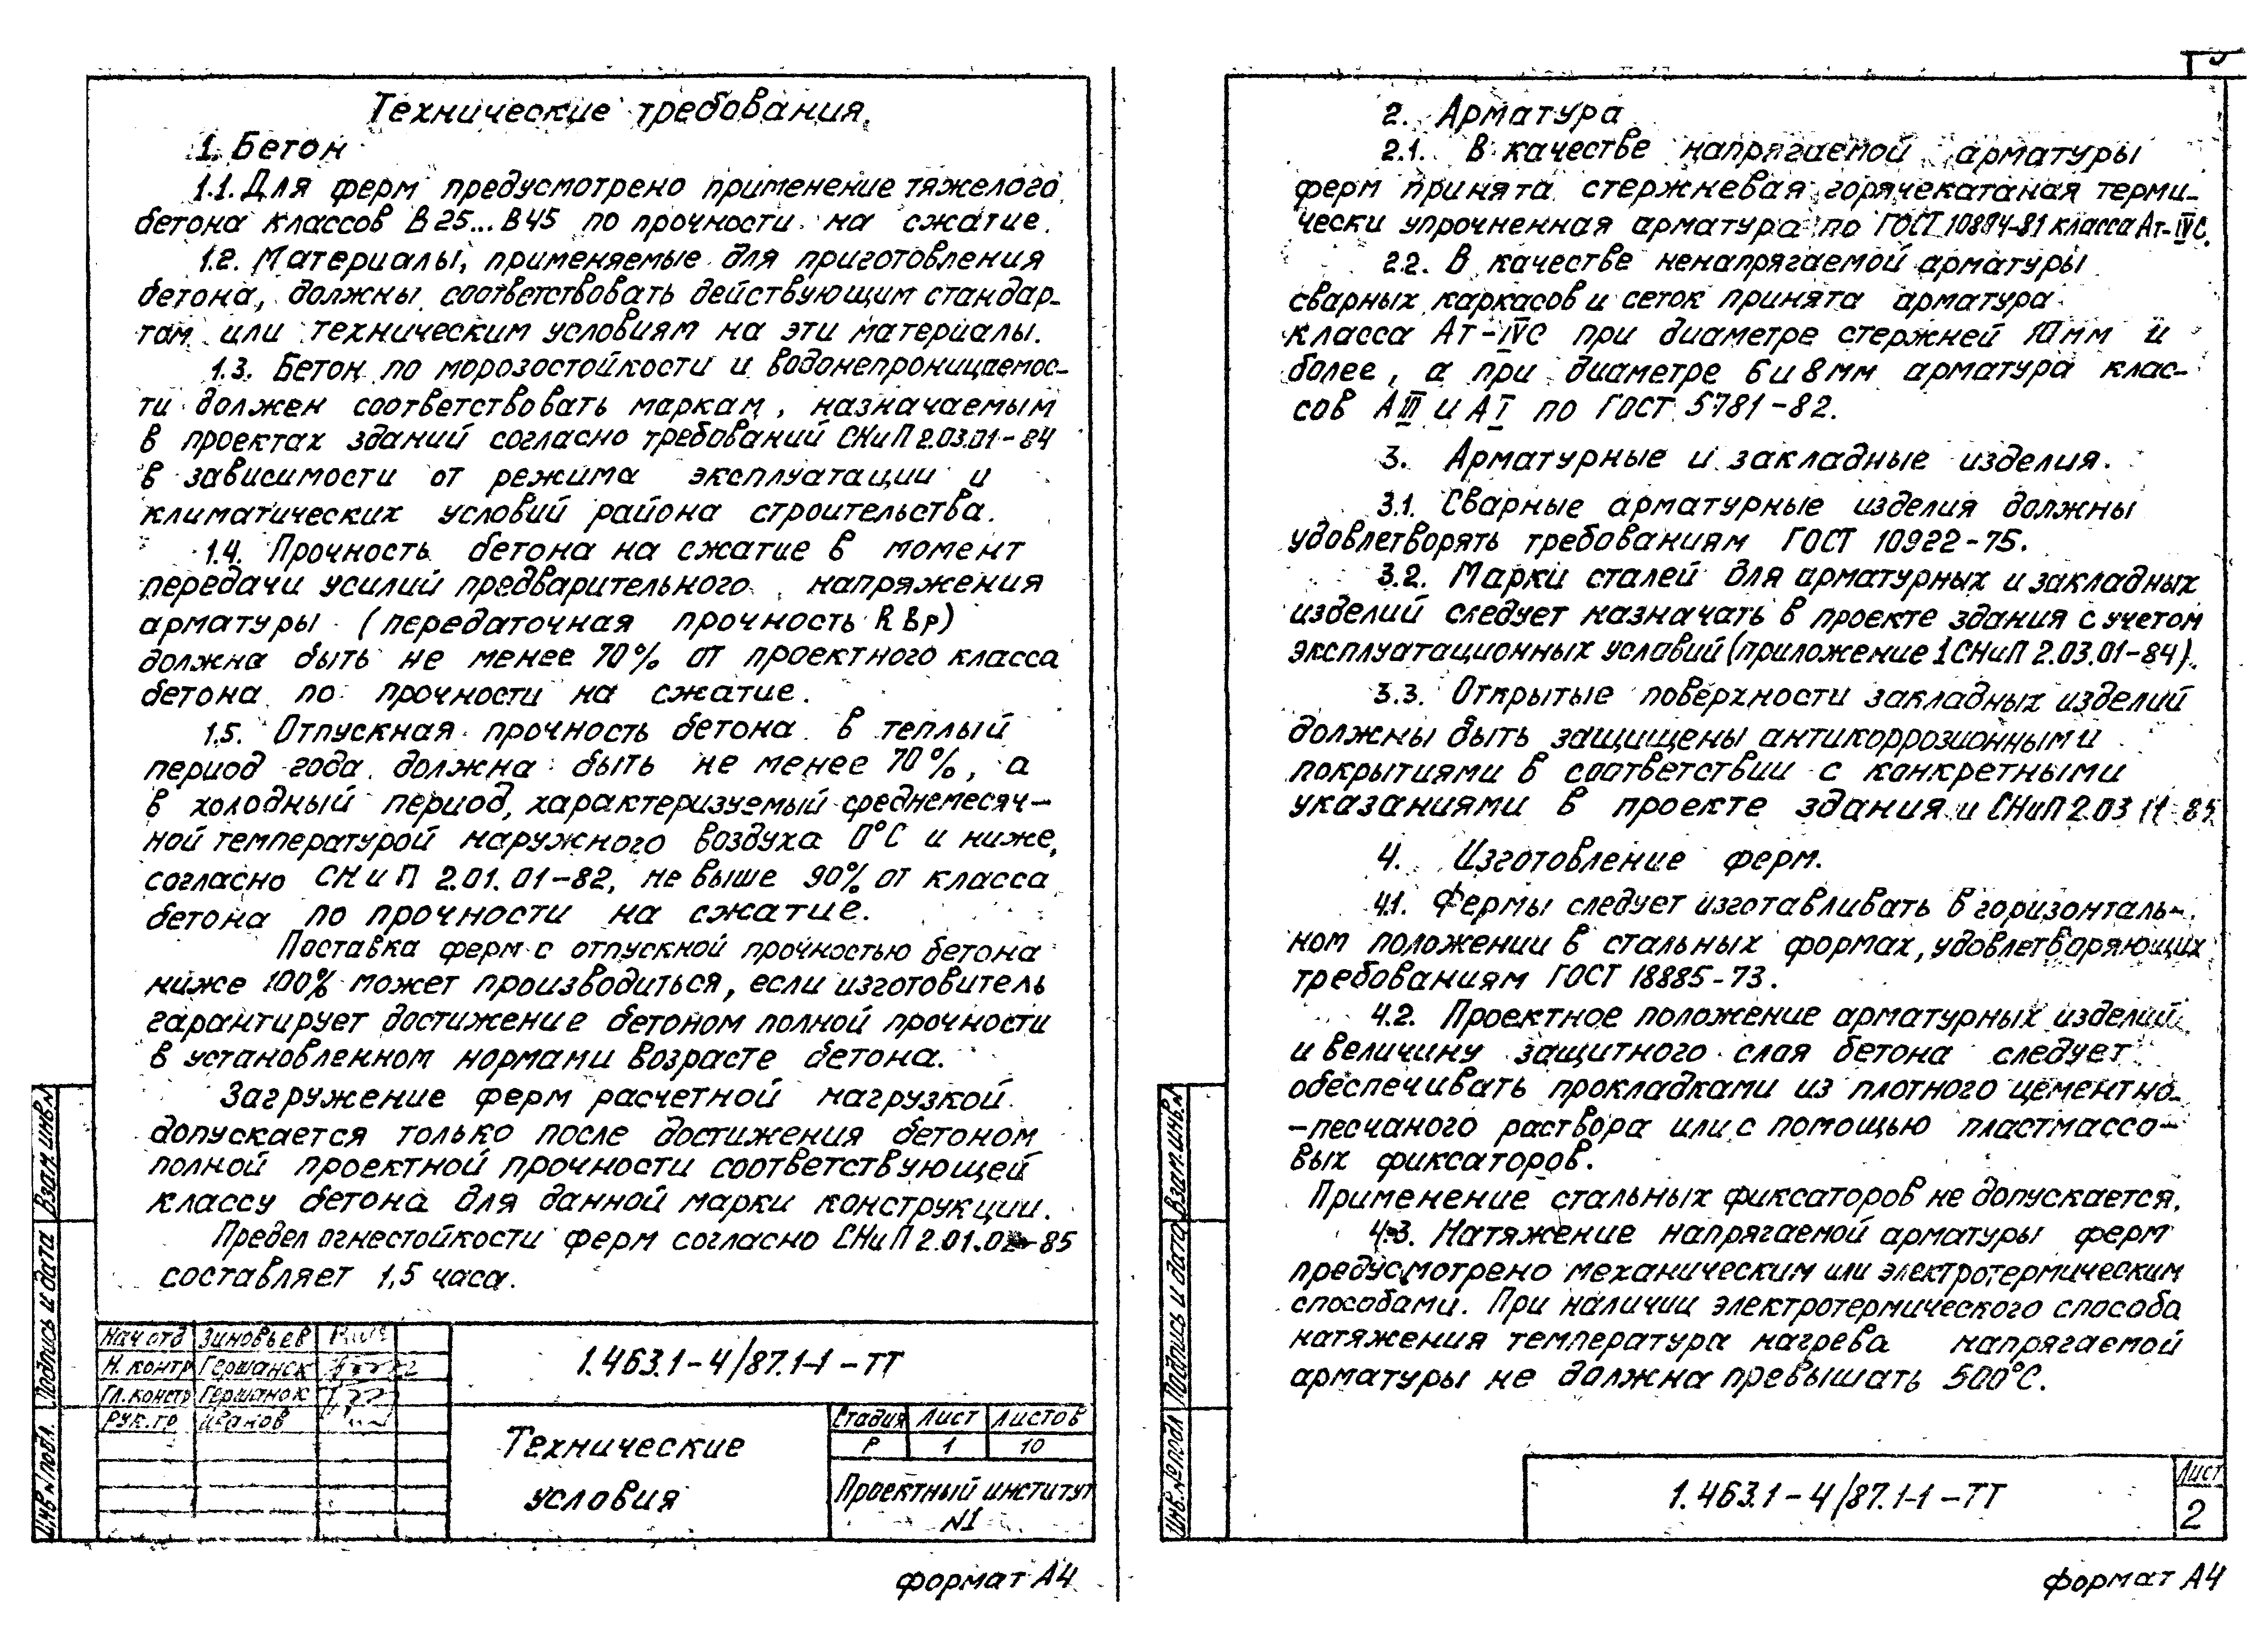 Технические требования.
1. Бетон
1.1. Для ферм предусмотрено применение тяжелого
бетона классов В25...В45 по прочности на сжатие.
1.2. Материалы, применяемые для приготовления
бетона, должны соответствовать действующим стандар-
там или техническим условиям на эти материалы.
1.3. Бетон по морозостойкости и водонепроницаемос-
ти должен соответствовать маркам, назначаемым
в проектах зданий согласно требований СНиП 2.03.01-84
в зависимости от режима эксплуатации и
климатических условий района строительства.
1.4. Прочность бетона на сжатие в момент
передачи усилий предварительного напряжения
арматуры (передаточная прочность Rвр)
должна быть не менее 70% от проектного класса
бетона по прочности на сжатие.
1.5. Отпускная прочность бетона в теплый
период года должна быть не менее 70%, а
в холодный период, характеризуемый среднемесяч-
ной температурой наружного воздуха 0°С и ниже,
согласно СНиП 2.01.01-82, не выше 90% от класса
бетона по прочности на сжатие.
Поставка ферм с отпускной прочностью бетона
ниже 100% может производиться, если изготовитель
гарантирует достижение бетоном полной прочности
в установленном нормами возрасте бетона.
Загружение ферм расчетной нагрузкой
допускается только после достижения бетоном
полной проектной прочности соответствующей
классу бетона для данной марки конструкции.
Предел огнестойкости ферм согласно СНиП 2.01.02-85
составляет 1,5 часа.
Нач отд Зиновьев
Н. контр Гершанок
Гл. констр Гершанок
Рук. гр Иванов
1.463.1-4/87.1-1-ТТ
Технические
условия
Стадия Лист Листов
Р 1 10
Проектный институт
№1
Инв № подл. Подпись и дата Взам. инв. №
формат А4
2. Арматура
2.1. В качестве напрягаемой арматуры
ферм принята стержневая горячекатаная терми-
чески упрочненная арматура по ГОСТ 10884-81 класса Ат-IVС.
2.2. В качестве ненапрягаемой арматуры
сварных каркасов и сеток принята арматура
класса Ат-IVС при диаметре стержней 10мм и
более, а при диаметре 6 и 8мм арматура клас-
сов АIII и АI по ГОСТ 5781-82.
3. Арматурные и закладные изделия.
3.1. Сварные арматурные изделия должны
удовлетворять требованиям ГОСТ 10922-75.
3.2. Марки сталей для арматурных и закладных
изделий следует назначать в проекте здания с учетом
эксплуатационных условий (приложение 1 СНиП 2.03.01-84).
3.3. Открытые поверхности закладных изделий
должны быть защищены антикоррозионными
покрытиями в соответствии с конкретными
указаниями в проекте здания и СНиП 2.03 11-85
4. Изготовление ферм.
4.1. Фермы следует изготавливать в горизонталь-
ном положении в стальных формах, удовлетворяющих
требованиям ГОСТ 18885-73.
4.2. Проектное положение арматурных изделий
и величину защитного слоя бетона следует
обеспечивать прокладками из плотного цементно-
-песчаного раствора или с помощью пластмассо-
вых фиксаторов.
Применение стальных фиксаторов не допускается.
4.3. Натяжение напрягаемой арматуры ферм
предусмотрено механическим или электротермическим
способами. При наличии электротермического способа
натяжения температура нагрева напрягаемой
арматуры не должна превышать 500°С.
1.463.1-4/87.1-1-ТТ
Лист
2
Инв. № подл Подпись и дата Взам. инв. №
формат А4